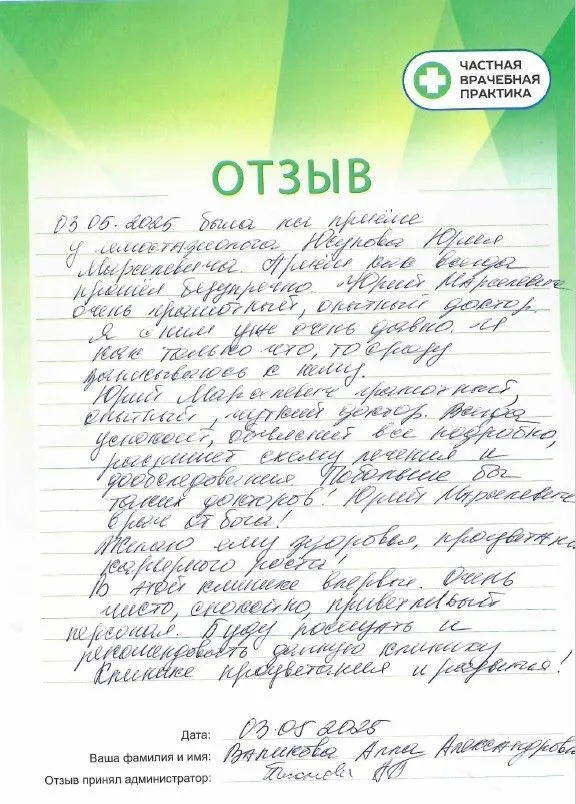 ЧАСТНАЯ
ВРАЧЕБНАЯ
ПРАКТИКА
ОТЗЫВ
03.05.2025 была на приёме
у Юсупова Юрия
Марселевича. Приём как всегда
прошёл безупречно. Юрий Марселевич
очень грамотный, опытный доктор.
Я с ним уже очень давно. И
как только что, то сразу
записываюсь к нему.
Юрий Марселевич грамотный,
опытный, чуткий доктор. Всегда
успокоит, объяснит все подробно,
распишет схему лечения и
дообследования. Побольше бы
таких докторов! Юрий Марселевич
врач от бога!
Желаю ему здоровья, процветания
карьерного роста!
В этой клинике впервые. Очень
чисто, спокойно, приветливый
персонал. Буду посещать и
рекомендовать данную клинику
Клинике процветания и развития!
Дата: 03.05.2025
Ваша фамилия и имя: Алла Александровна
Отзыв принял администратор: